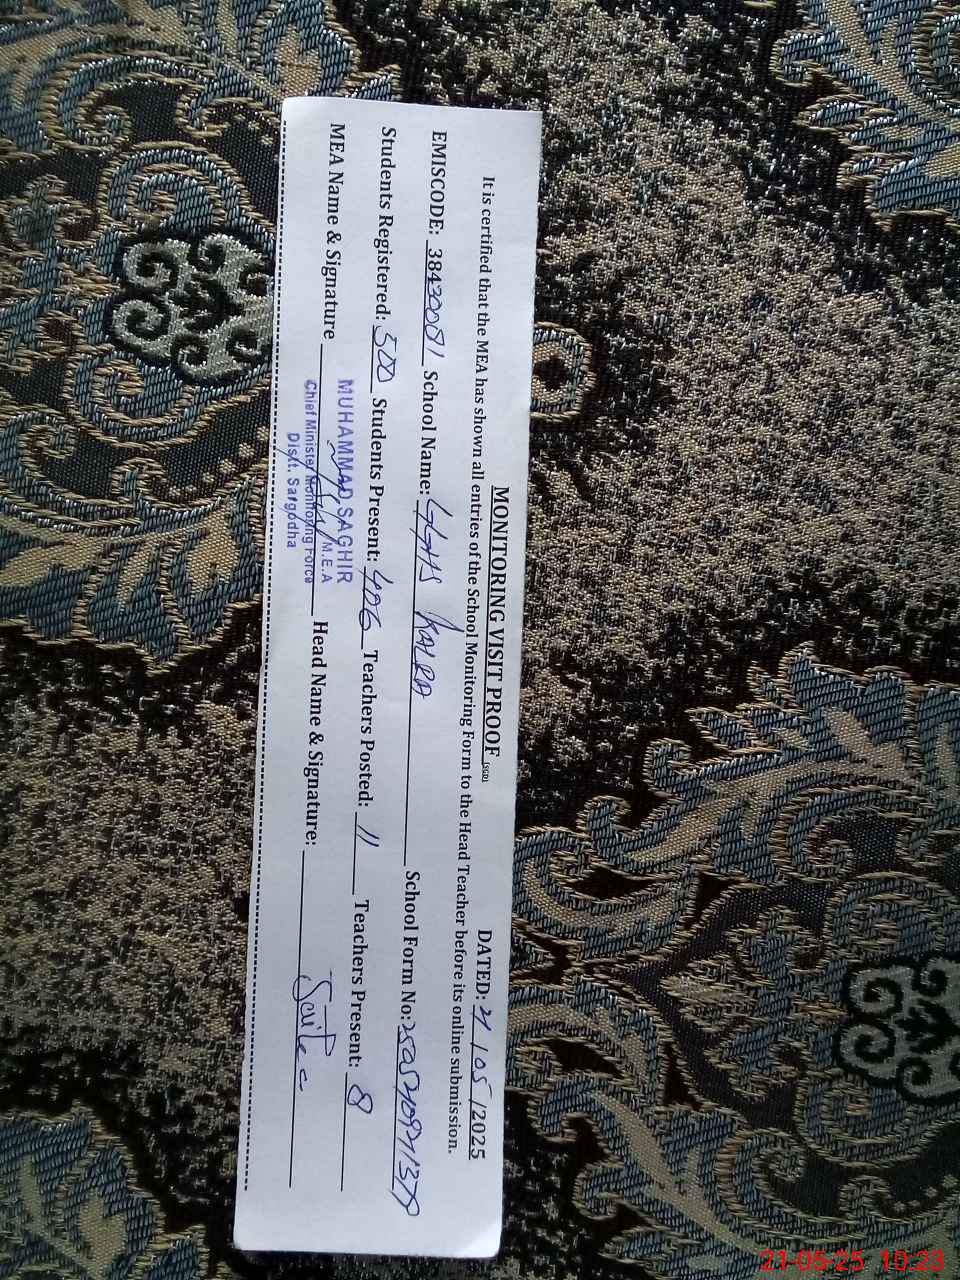 MONITORING VISIT PROOF (SGD) DATED: 21/05/2025
It is certified that the MEA has shown all entries of the School Monitoring Form to the Head Teacher before its online submission.
EMISCODE: 38430081 School Name: GGHS KALRA School Form No:
Students Registered: 500 Students Present: 406 Teachers Posted: 11 Teachers Present: 8
MEA Name & Signature Head Name & Signature:
MUHAMMAD SAGHIR
M.E.A
Chief Minister Monitoring Force
Distt. Sargodha
21-05-25 10:23